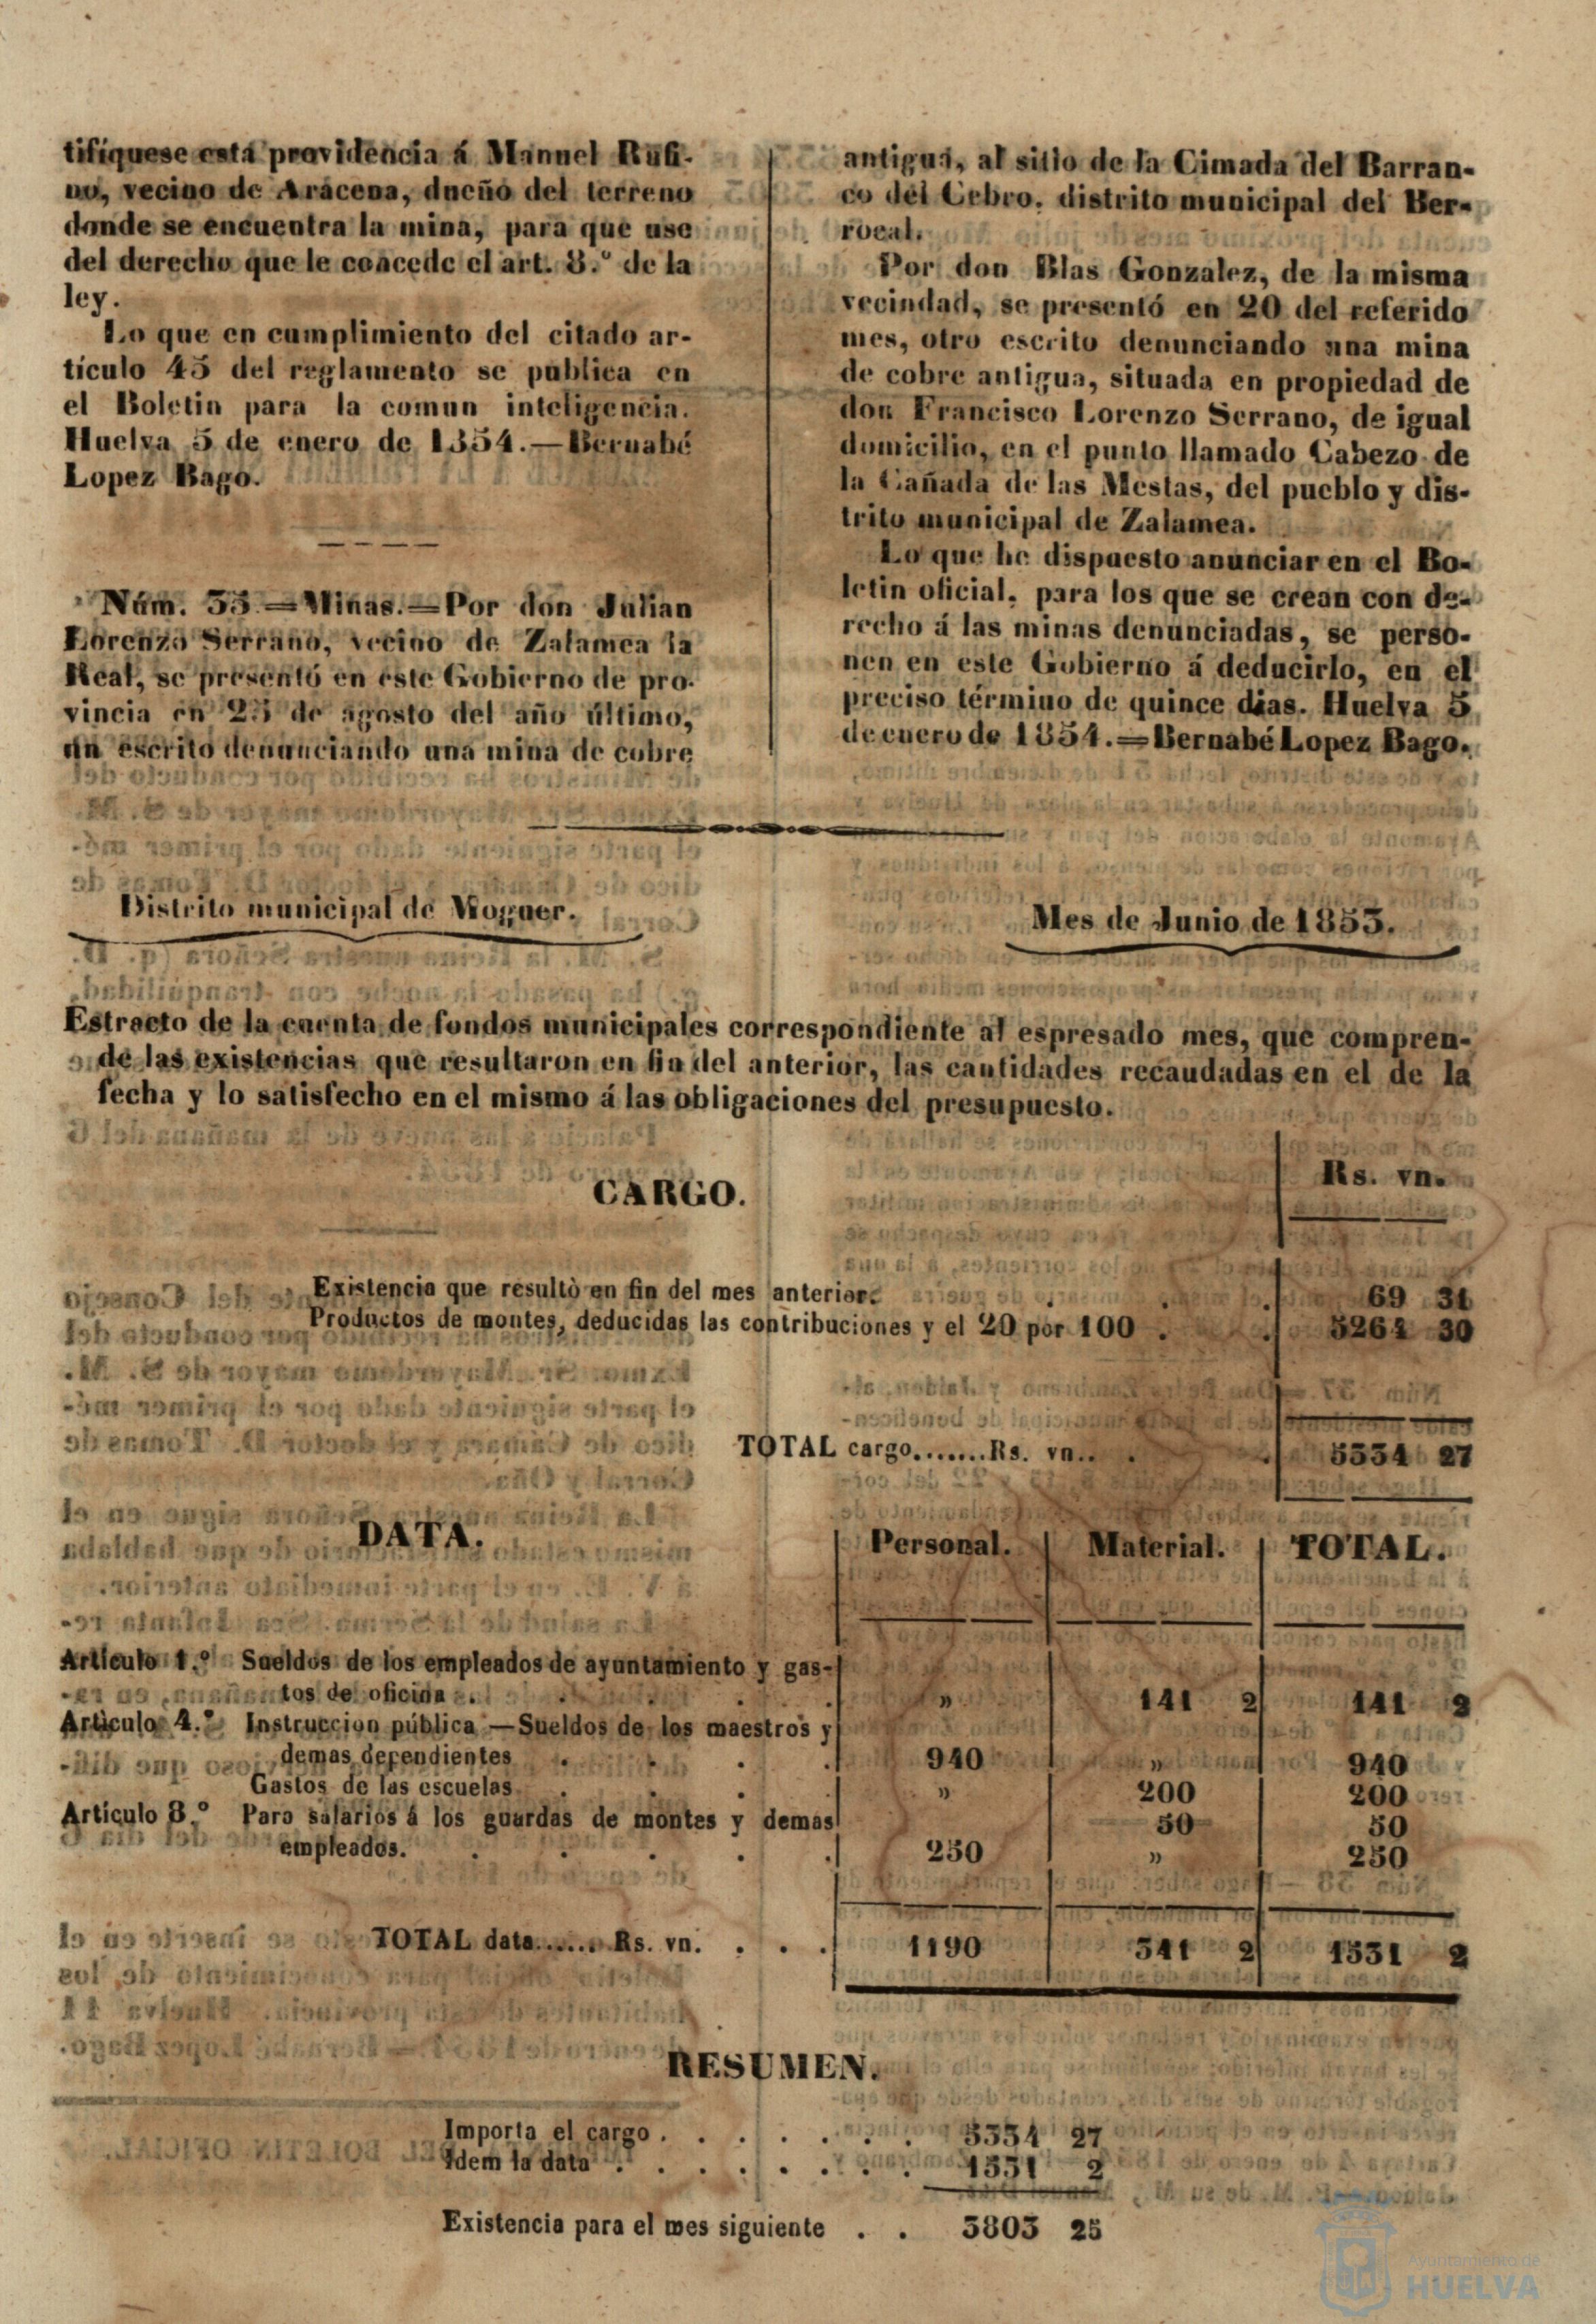 tifíquese esta providencia á Manuel Rufi-
no, vecino de Aracena, dueño del terreno
donde se encuentra la mina, para que use
del derecho que le concede el art. 8.º de la
ley.
Lo que en cumplimiento del citado ar-
tículo 45 del reglamento se publica en
el Boletin para la comun inteligencia.
Huelva 5 de enero de 1854.—Bernabé
Lopez Bago.
Núm. 35.—Minas.—Por don Julian
Lorenzo Serrano, vecino de Zalamea la
Real, se presentó en este Gobierno de pro-
vincia en 25 de agosto del año último,
un escrito denunciando una mina de cobre
antigua, al sitio de la Cimada del Barran-
co del Cebro, distrito municipal del Ber-
rocal.
Por don Blas Gonzalez, de la misma
vecindad, se presentó en 20 del referido
mes, otro escrito denunciando una mina
de cobre antigua, situada en propiedad de
don Francisco Lorenzo Serrano, de igual
domicilio, en el punto llamado Cabezo de
la Cañada de las Mestas, del pueblo y dis-
trito municipal de Zalamea.
Lo que he dispuesto anunciar en el Bo-
letin oficial, para los que se crean con de-
recho á las minas denunciadas, se perso-
nen en este Gobierno á deducirlo, en el
preciso término de quince dias. Huelva 5
de enero de 1854.—Bernabé Lopez Bago.
Distrito municipal de Moguer.
Mes de Junio de 1853.
Estracto de la cuenta de fondos municipales correspondiente al espresado mes, que compren-
de las existencias que resultaron en fin del anterior, las cantidades recaudadas en el de la
fecha y lo satisfecho en el mismo á las obligaciones del presupuesto.
Rs. vn.
CARGO.
Existencia que resultò en fin del mes anterior. . . . 69 31
Productos de montes, deducidas las contribuciones y el 20 por 100 . . 5264 30
TOTAL cargo.......Rs. vn.. . . 5334 27
DATA. Personal. Material. TOTAL.
Artículo 1.º Sueldos de los empleados de ayuntamiento y gas-
tos de oficina . . . . . » 141 2 141 2
Artìculo 4.º Instruccion pública —Sueldos de los maestros y
demas dependientes . . . . 940 » 940
Gastos de las escuelas. . . . . » 200 200
Articulo 8.º Para salarios á los guardas de montes y demas 50 50
empleados. . . . . . 250 » 250
TOTAL data...... Rs. vn. . . . 1190 341 2 1531 2
RESUMEN.
Importa el cargo . . . . . . . 5334 27
Idem la data . . . . . . . . 1531 2
Existencia para el mes siguiente . . 3803 25
Ayuntamiento de
HUELVA